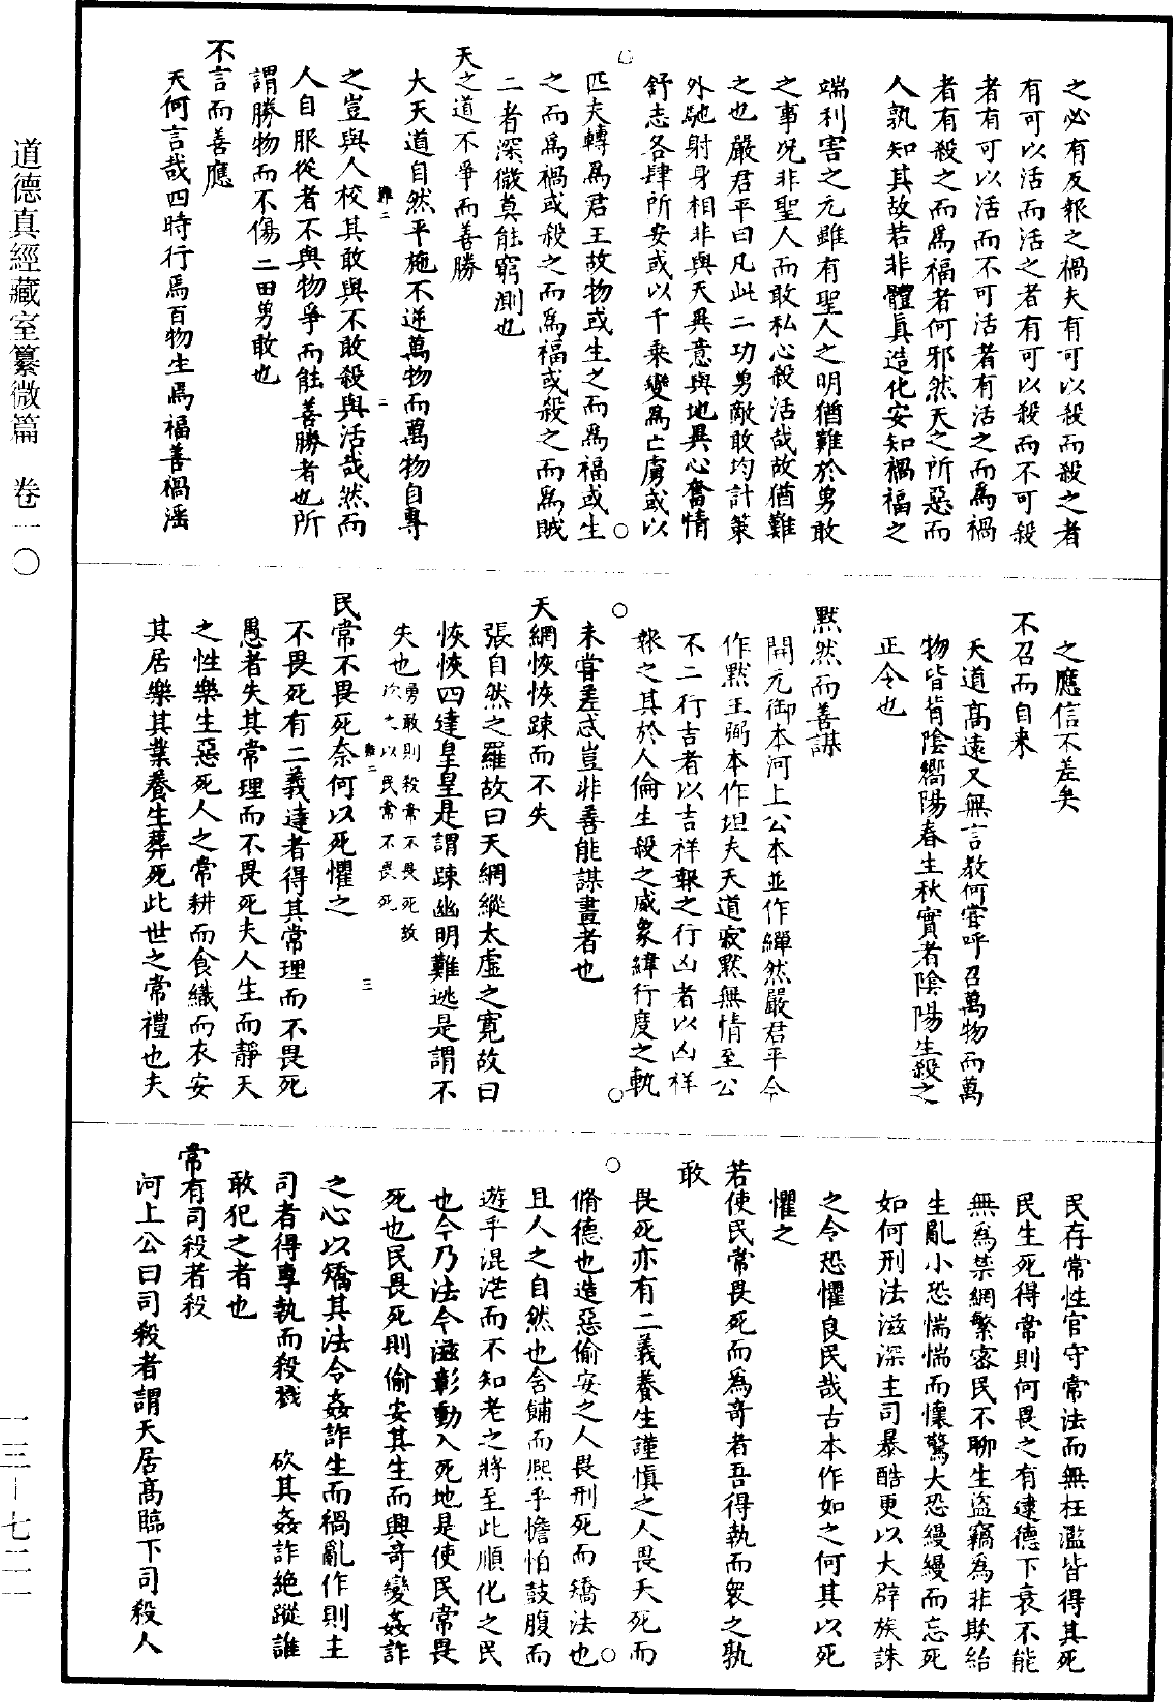 道德真經藏室纂微篇　卷一〇
之必有反報之禍夫有可以殺而殺之者
有可以活而活之者有可以殺而不可殺
者有可以活而不可活者有活之而為禍
者有殺之而為福者何邪然天之所惡而
人孰知其故若非體真造化安知禍福之
端利害之元雖有聖人之明猶難於勇敢
之事况非聖人而敢私心殺活哉故猶難
之也嚴君平曰凡此二功勇敵敢均計策
外馳射身相非與天異意與地異心奮情
舒志各肆所安或以千乘變為亡虜或以
匹夫轉為君王故物或生之而為福或生
之而為禍或殺之而為福或殺之而為賊
二者深微莫能窮測也
天之道不爭而善勝
大天道自然平施不逆萬物而萬物自尊
難二　二
之豈與人校其敢與不敢殺與活哉然而
人自服從者不與物爭而能善勝者也所
謂勝物而不傷二田勇敢也
不言而善應
天何言哉四時行焉百物生焉福善禍滛
之應信不差矣
不召而自来
天道高遠又無言教何甞呼召萬物而萬
物皆背陰嚮陽春生秋實者陰陽生殺之
正令也
默然而善謀
開元御本河上公本並作繟然嚴君平今
作默王弼本作坦夫天道寂默無情至公
不二行吉者以吉祥報之行凶者以凶祥
報之其於人倫生殺之威象緯行度之軌
未嘗差忒豈非善能謀畫者也
天網恢恢踈而不失
張自然之羅故曰天網縱太虛之寬故曰
恢恢四達皇皇是謂踈幽明難逃是謂不
失也勇敢則殺常不畏死故
次之以民常不畏死
難二　三
民常不畏死奈何以死懼之
不畏死有二義達者得其常理而不畏死
愚者失其常理而不畏死夫人生而靜天
之性樂生惡死人之常耕而食織而衣安
其居樂其業養生葬死此世之常禮也夫
民存常性官守常法而無枉濫皆得其死
民生死得常則何畏之有逮德下衰不能
無為禁網繁密民不聊生盗竊為非欺紿
生亂小恐惴惴而懷驚大恐縵縵而忘死
如何刑法滋深主司暴酷更以大辟族誅
之令恐懼良民哉古本作如之何其以死
懼之
若使民常畏死而為竒者吾得執而𣪠之孰
敢
畏死亦有二義養生謹慎之人畏天死而
脩德也造惡偷安之人畏刑死而矯法也
且人之自然也含餔而熈乎憺怕鼓腹而
遊乎混茫而不知老之將至此順化之民
也今乃法令滋彰動入死地是使民常畏
死也民畏死則偷安其生而興竒變姦詐
之心以矯其法令姦詐生而禍亂作則主
司者得專執而殺戮　砍其姦詐絶蹤誰
敢犯之者也
常有司殺者殺
河上公曰司殺者謂天居髙臨下司殺人
一三—七二一